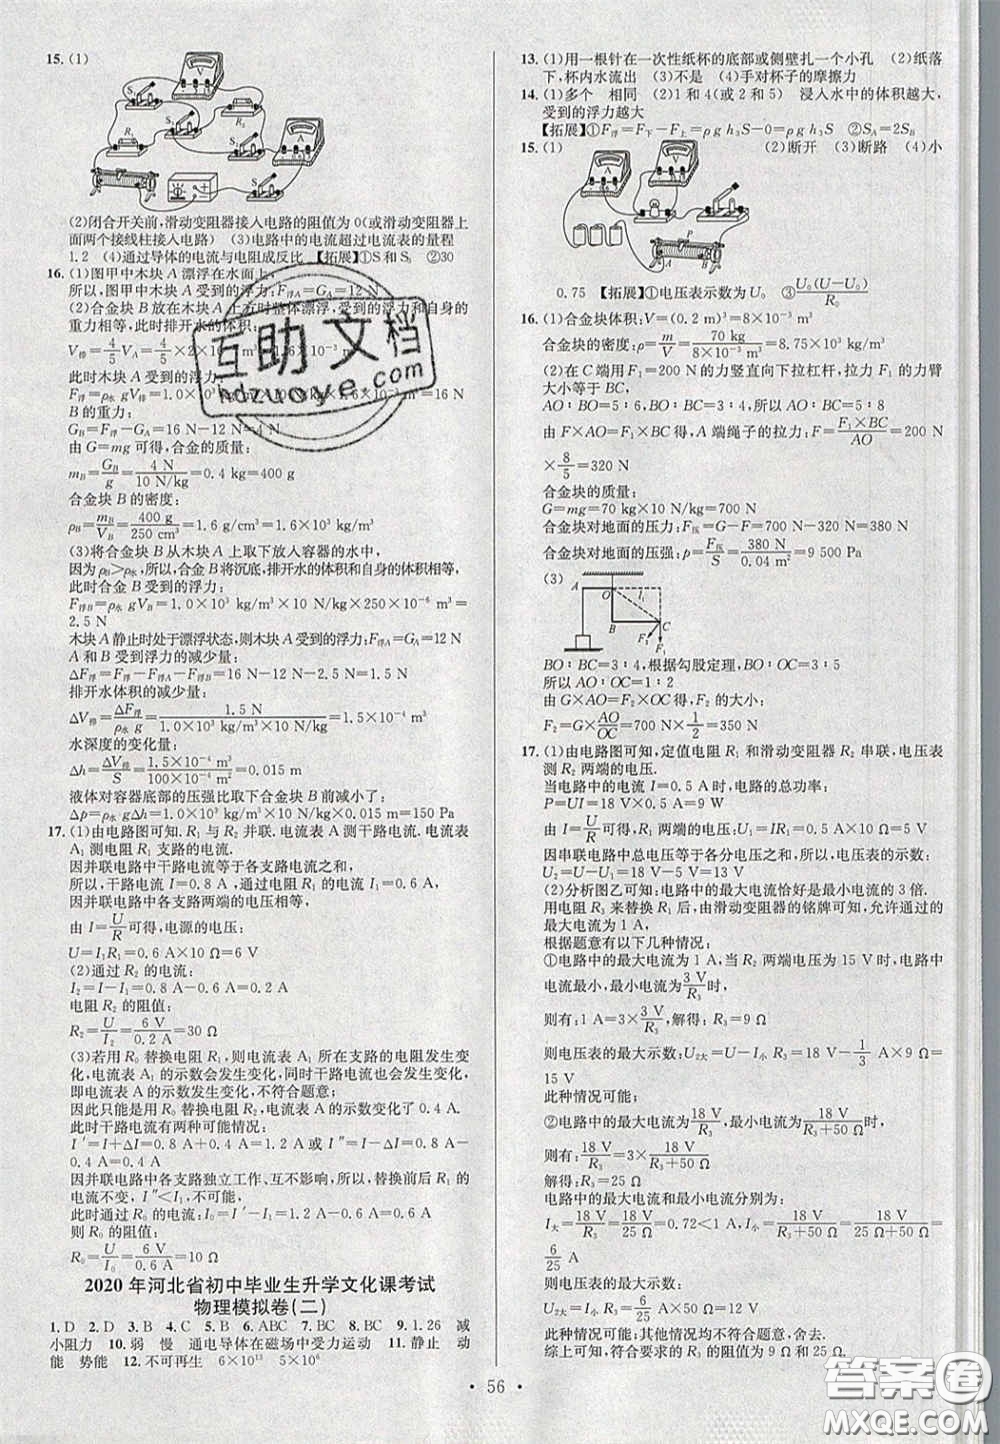 15. (1)
S₂
V
S₁
R₁
R₂
S₃
A
S
(2)闭合开关前,滑动变阻器接入电路的阻值为0(或滑动变阻器上
面两个接线柱接入电路) (3)电路中的电流超过电流表的量程
1.2 (4)通过导体的电流与电阻成反比 【拓展】①S和S₃ ②30
16. (1)图甲中木块A漂浮在水面上:
所以,木块A受到的浮力:F浮A=GA=12 N
(2)合金块B放在木块A上方时整体漂浮,受到的浮力和自身的
重力相等,此时排开水的体积:
此时木块A受到的浮力:
B的重力:
GB=F浮-GA=16 N-12 N=4 N
由G=mg可得,合金的质量:
mB=GB/g=4 N/10 N/kg=0.4 kg=400 g
合金块B的密度:
ρB=mB/VB=400 g/250 cm³=1.6 g/cm³=1.6×10³ kg/m³
(3)将合金块B从木块A上取下放入容器的水中,
因为ρB>ρ水,所以,合金块B将沉底,排开水的体积和自身的体积相等,
此时合金块B受到的浮力:
F浮B=ρ水gVB=1.0×10³ kg/m³×10 N/kg×250×10⁻⁶ m³=
2.5 N
木块A静止时处于漂浮状态,则木块A受到的浮力:F浮A=GA=12 N
A和B受到的浮力的减少量:
ΔF浮=F浮-F浮A-F浮B=16 N-12 N-2.5 N=1.5 N
排开水体积的减少量:
ΔV排=ΔF浮/ρ水g=1.5 N/1.0×10³ kg/m³×10 N/kg=1.5×10⁻⁴ m³
水深度的变化量:
Δh=ΔV排/S=1.5×10⁻⁴ m³/100×10⁻⁴ m²=0.015 m
液体对容器底部的压强比取下合金块B前减小了:
Δp=ρ水gΔh=1.0×10³ kg/m³×10 N/kg×0.015 m=150 Pa
17. (1)由电路图可知,R₁与R₂并联,电流表A测干路电流,电流表
A₁测电阻R₁支路的电流.
因并联电路中干路电流等于各支路电流之和,
所以,干路电流I=0.8 A,通过电阻R₁的电流I₁=0.6 A,
因并联电路中各支路两端的电压相等,
由I=U/R可得,电源的电压:
U=I₁R₁=0.6 A×10 Ω=6 V
(2)通过R₂的电流:
I₂=I-I₁=0.8 A-0.6 A=0.2 A
电阻R₂的阻值:
R₂=U/I₂=6 V/0.2 A=30 Ω
(3)若用R₀替换电阻R₁,则电流表A₁所在支路的电阻发生变
化,电流表A₁的示数会发生变化,同时干路电流也会发生变化,
即电流表A的示数发生变化,不符合题意;
因此只能是用R₀替换电阻R₂,电流表A的示数变化了0.4 A.
此时干路电流有两种可能情况:
I′=I+ΔI=0.8 A+0.4 A=1.2 A或I″=I-ΔI=0.8 A-
0.4 A=0.4 A
因并联电路中各支路独立工作、互不影响,所以,替换前后R₁的
电流不变,I″<I₁,不可能,
此时通过R₀的电流:I₀=I′-I₁=1.2 A-0.6 A=0.6 A
则R₀的阻值:
R₀=U/I₀=6 V/0.6 A=10 Ω
2020年河北省初中毕业生升学文化课考试
物理模拟卷(二)
1. D 2. D 3. B 4. C 5. B 6. ABC 7. BC 8. BC 9. 1.26 减
小阻力 10. 弱 慢 通电导体在磁场中受力运动 11. 静止 动
能 势能 12. 不可再生 6×10¹³ 5×10⁶
13. (1)用一根针在一次性纸杯的底部或侧壁扎一个小孔 (2)纸落
下,杯内水流出 (3)不是 (4)手对杯子的摩擦力
14. (1)多个 相同 (2)1和4(或2和5) 浸入水中的体积越大,
受到的浮力越大
【拓展】①F浮=F下-F上=ρgh₃S-0=ρgh₃S ②SA=2SB
15. (1) (2)断开 (3)断路 (4)小
P
0.75 【拓展】①电压表示数为U₀ ③U₀(U-U₀)/R₀
16. (1)合金块体积:V=(0.2 m)³=8×10⁻³ m³
合金块的密度:ρ=m/V=70 kg/8×10⁻³ m³=8.75×10³ kg/m³
(2)在C端用F₁=200 N的力竖直向下拉杠杆,拉力F₁的力臂
大小等于BC,
AO∶BO=5∶6,BO∶BC=3∶4,所以AO∶BC=5∶8
由F×AO=F₁×BC得,A端绳子的拉力:F=F₁×BC/AO=200 N
×8/5=320 N
合金块的质量:
G=mg=70 kg×10 N/kg=700 N
合金块对地面的压力:F压=G-F=700 N-320 N=380 N
合金块对地面的压强:p=F压/S=380 N/0.04 m²=9 500 Pa
(3)
A
O
l₁
B
C
F₂
F₁
BO∶BC=3∶4,根据勾股定理,BO∶OC=3∶5
所以AO∶OC=1∶2
由G×AO=F₂×OC得,F₂的大小:
F₂=G×AO/OC=700 N×1/2=350 N
17. (1)由电路图可知,定值电阻R₁和滑动变阻器R₂串联,电压表
测R₂两端的电压.
当电路中的电流I=0.5 A时,电路的总功率:
P=UI=18 V×0.5 A=9 W
由I=U/R可得,R₁两端的电压:U₁=IR₁=0.5 A×10 Ω=5 V
因串联电路中总电压等于各分电压之和,所以电压表的示数:
U₂=U-U₁=18 V-5 V=13 V
(2)分析图乙可知:电路中的最大电流恰好是最小电流的3倍.
用电阻R₃来替换R₁后,由滑动变阻器的铭牌可知,允许通过的
最大电流为1 A,
根据题意有以下几种情况:
①电路中的最大电流为1 A、当R₂两端电压为15 V时,电路中
电流最小,最小电流为3 V/R₃时,
则有:1 A=3×3 V/R₃,解得:R₃=9 Ω
则电压表的最大示数:U₂大=U-I小R₃=18 V-1/3 A×9 Ω=
15 V
此种情况可能;
②电路中的最大电流为18 V/R₃、最小电流为18 V/R₃+50 Ω时,
则有:18 V/R₃=3×18 V/R₃+50 Ω
解得:R₃=25 Ω
电路中的最大电流和最小电流分别为:
I大=18 V/R₃=18 V/25 Ω=0.72<1 A,I小=18 V/R₃+50 Ω=18 V/25 Ω+50 Ω=
6/25 A
则电压表的最大示数:
此种情况可能.
综上可知,符合要求的R₃的阻值为9 Ω和25 Ω.
· 56 ·
互助文档
hdzuoye.com
答案圈
MXQE.COM